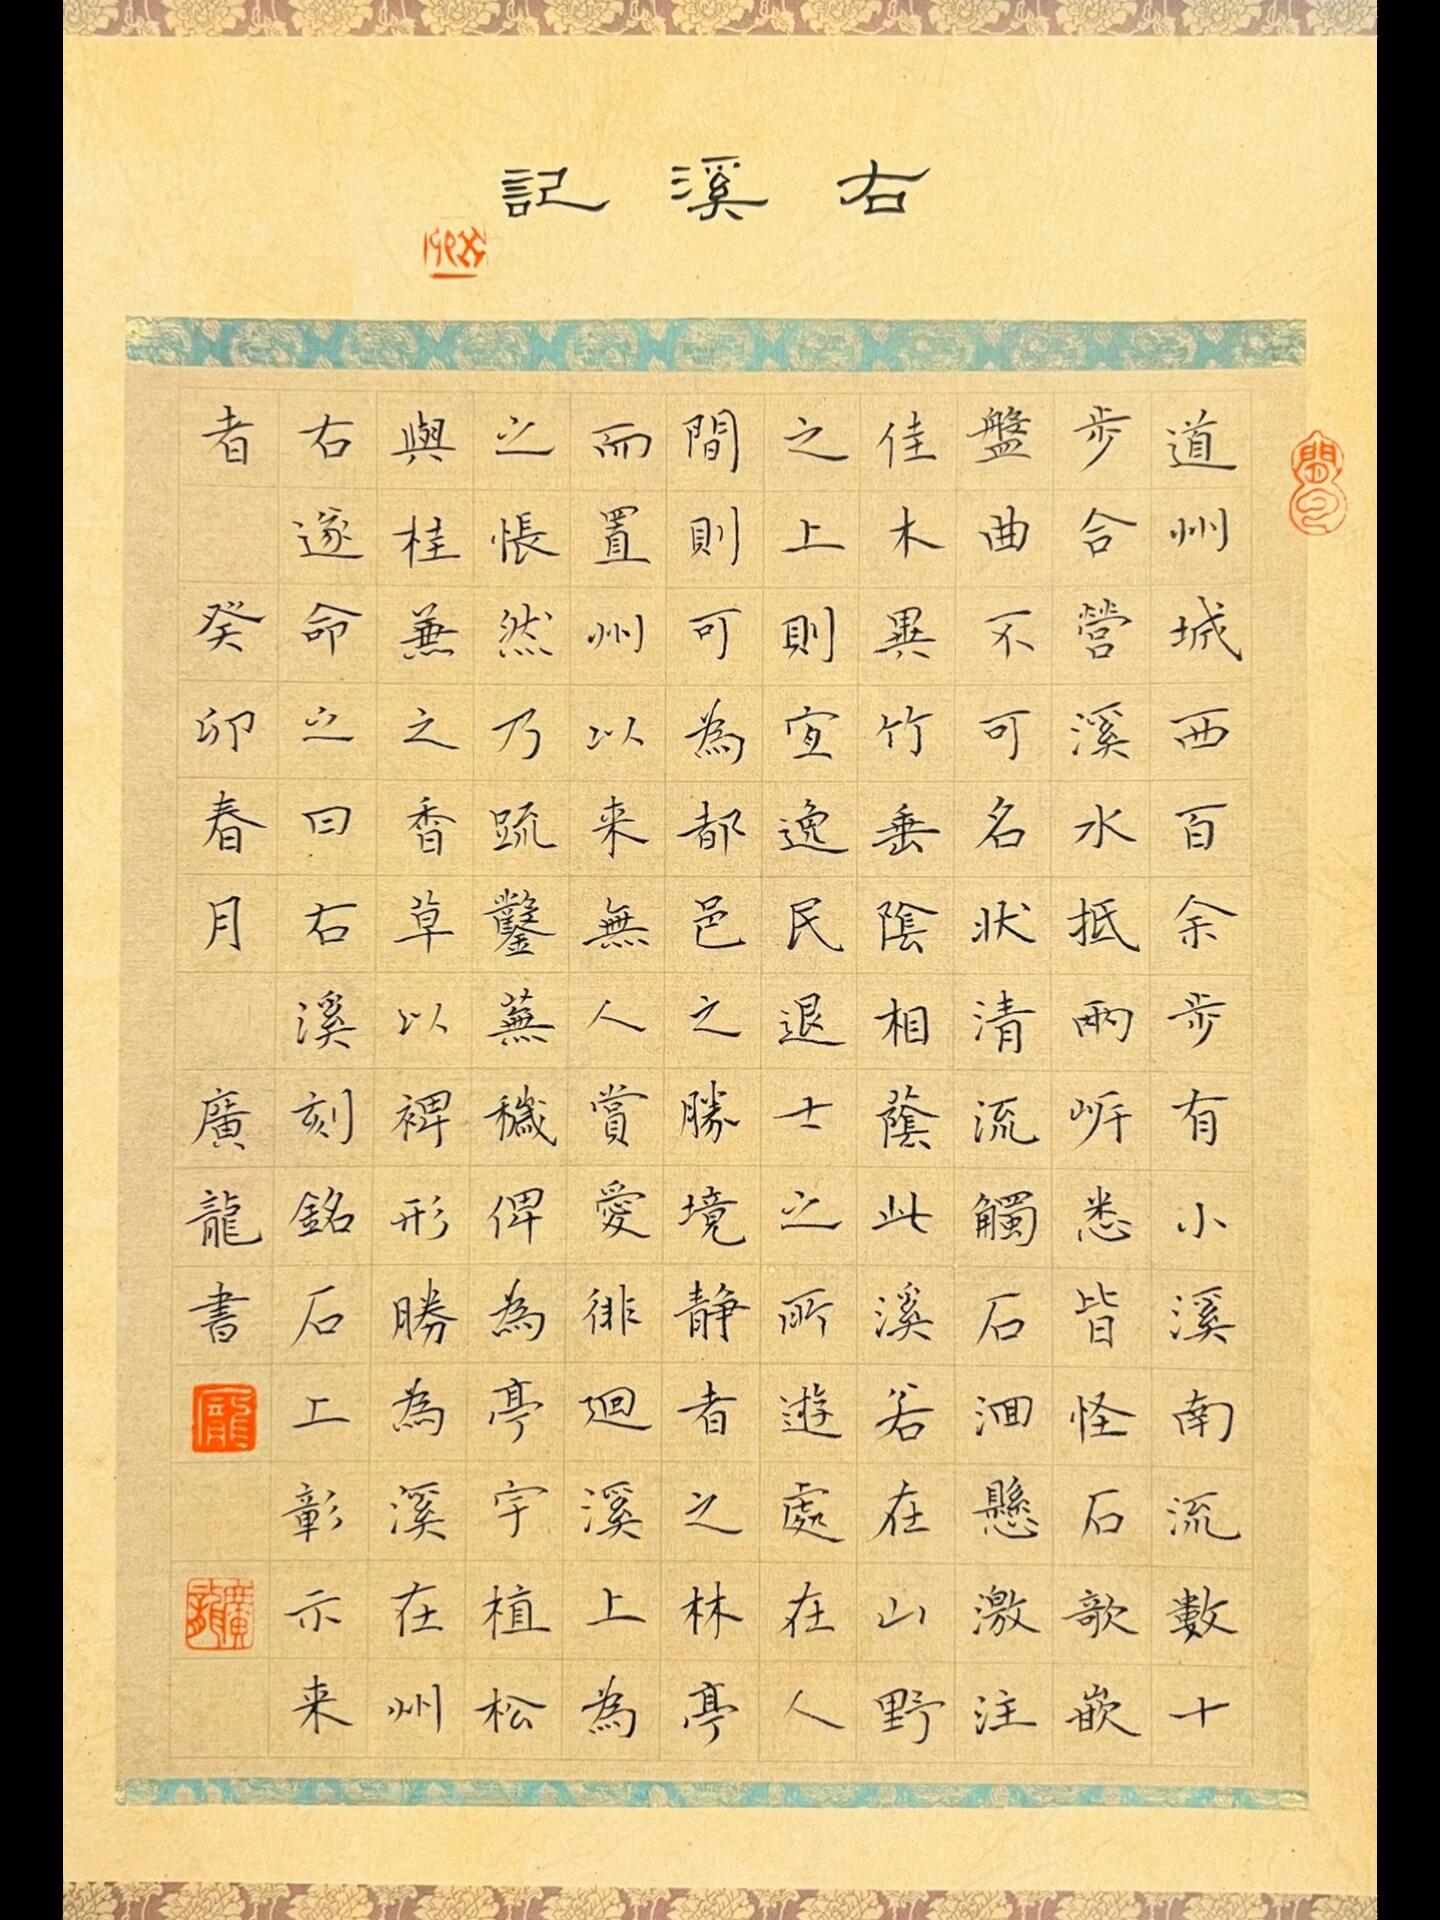 右溪記
道州城西百余步有小溪南流數十
步合營溪水抵兩岍悉皆怪石歌嵌
盤曲不可名狀清流觸石洄懸激注
佳木異竹垂陰相蔭此溪若在山野
之上則宜逸民退士之所遊處在人
間則可為都邑之勝境静者之林亭
而置州以来無人賞愛徘廻溪上為
之悵然乃疏鑿蕪穢俾為亭宇植松
與桂兼之香草以裨形勝為溪在州
右遂命之曰右溪刻銘石上彰示来
者 癸卯春月 廣龍書
龍
廣龍